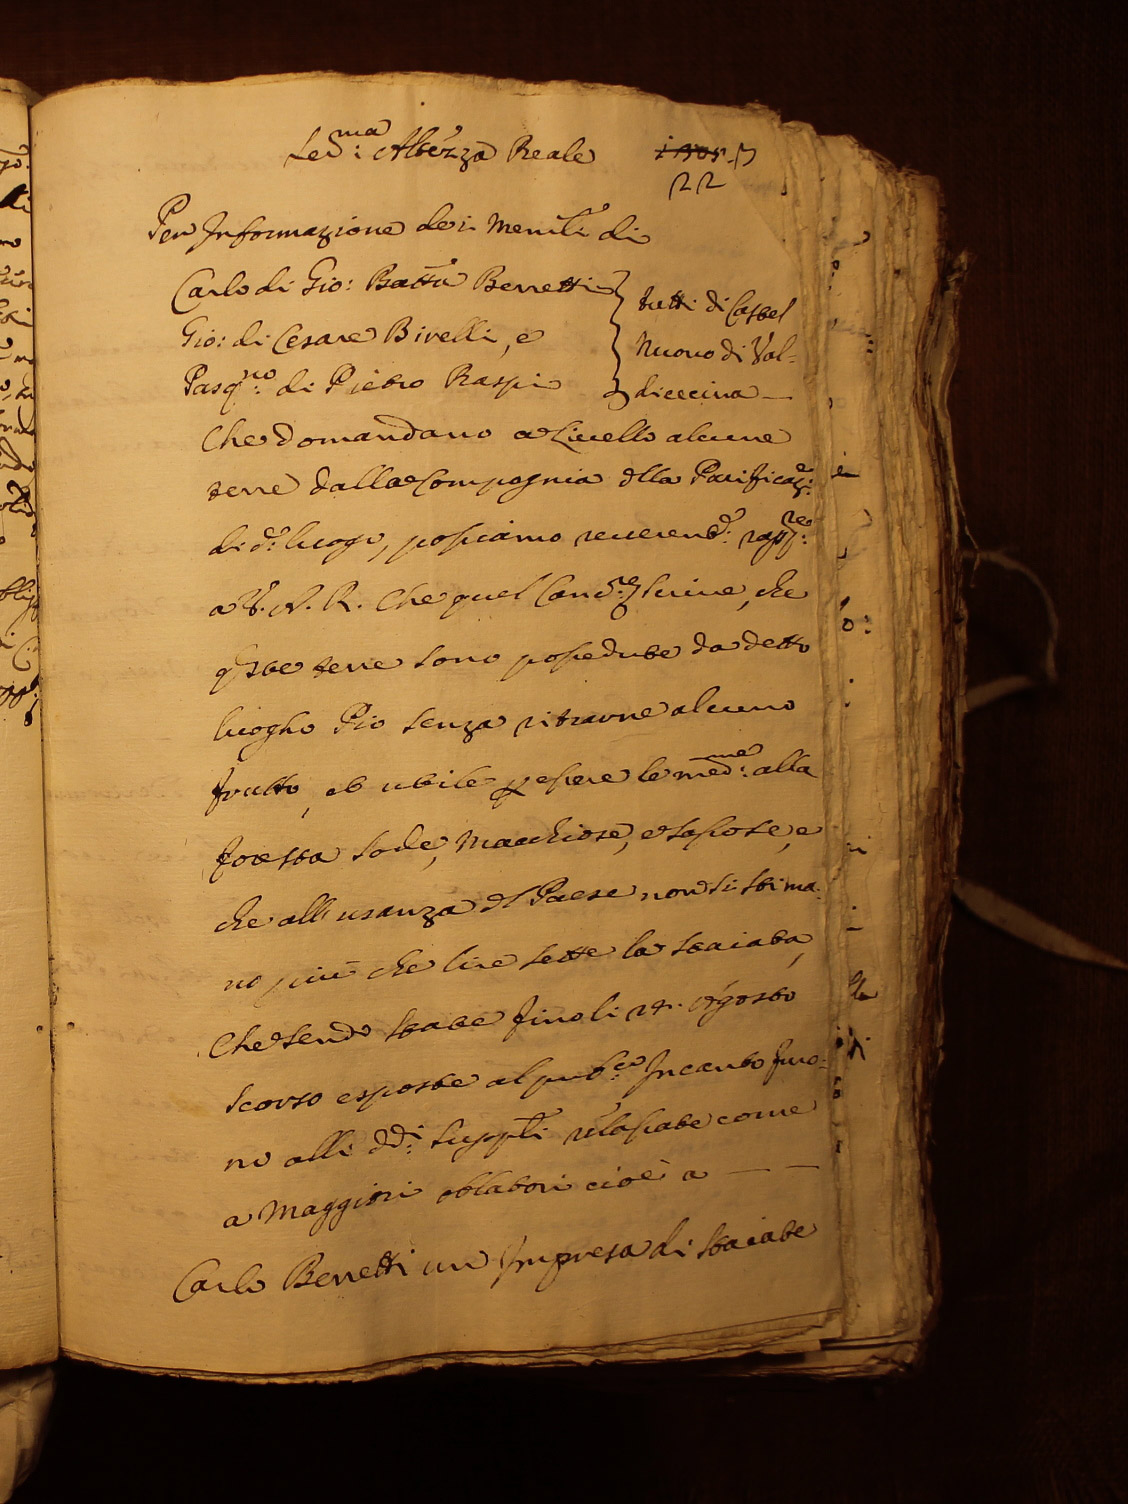 Ser.ma Altezza Reale
22
Per Informazione dei Memli di
Carlo di Gio: Batta Berretti
Gio: di Cesare Bivelli, e
Pasq.no di Pietro Raspi
tutti di Castel
Nuovo di Val=
dicecina
Che domandano a Livello alcune
terre dalla Compagnia dlla Purificaz.e
di d.o luogo, possiamo reverend.e rapp.re
a V. A. R. Che quel Canc.re scrive, che
qste terre sono possedute da detto
luogho Pio senza ritrarne alcuno
frutto, et utile p essere le med.me alla
foresta sode, Macchiose, e sassose, e
che all'usanza dl Paese non si stima=
no più che lire sette la staiata,
Che sendo state fino li 24. Agosto
scorso esposte al pub.co Incanto furo=
no alli dd.i Supp.ti rilasciate come
a Maggiori oblatori cioè a
Carlo Berretti un Impresa di staiate